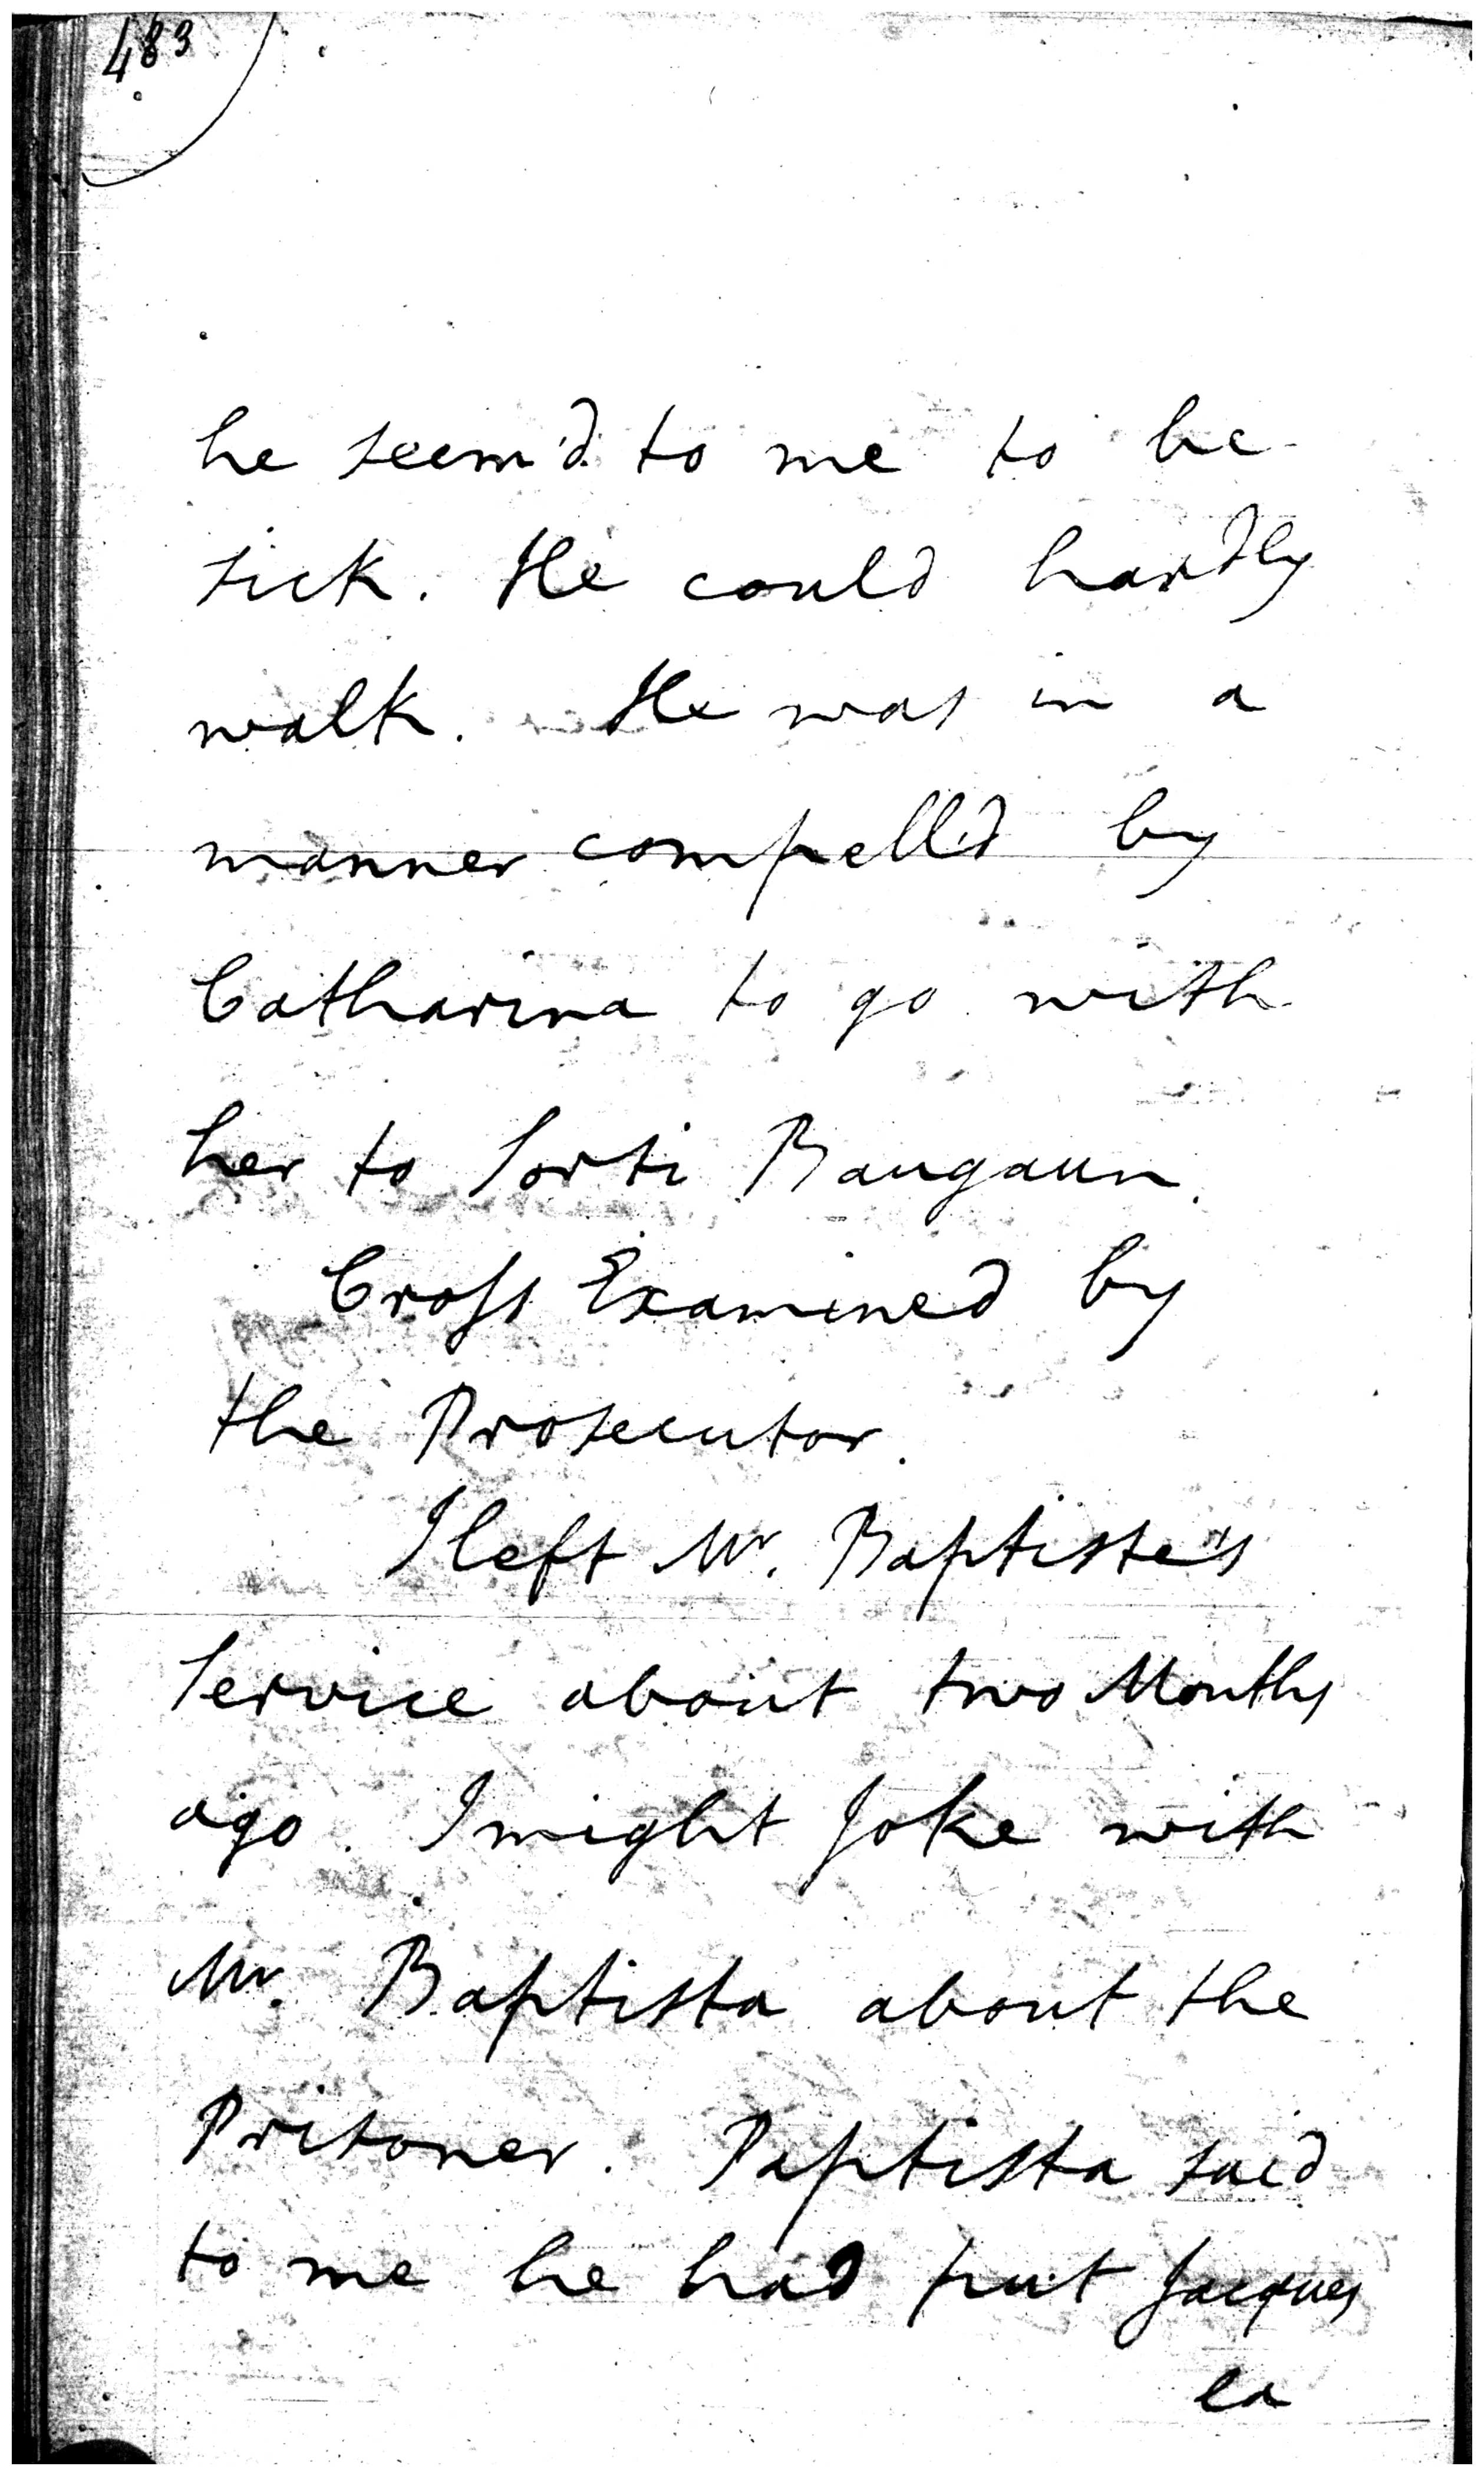 483
he seem'd to me to be
sick. He could hardly
walk. He was in a
manner compell'd by
Catharina to go with
her to Sorti Baugaun.
Cross Examined by
the Prosecutor.
I left Mr. Baptiste's
Service about two Months
ago. I might Joke with
Mr. Baptista about the
Prisoner. Baptista said
to me he had put Jacques
la